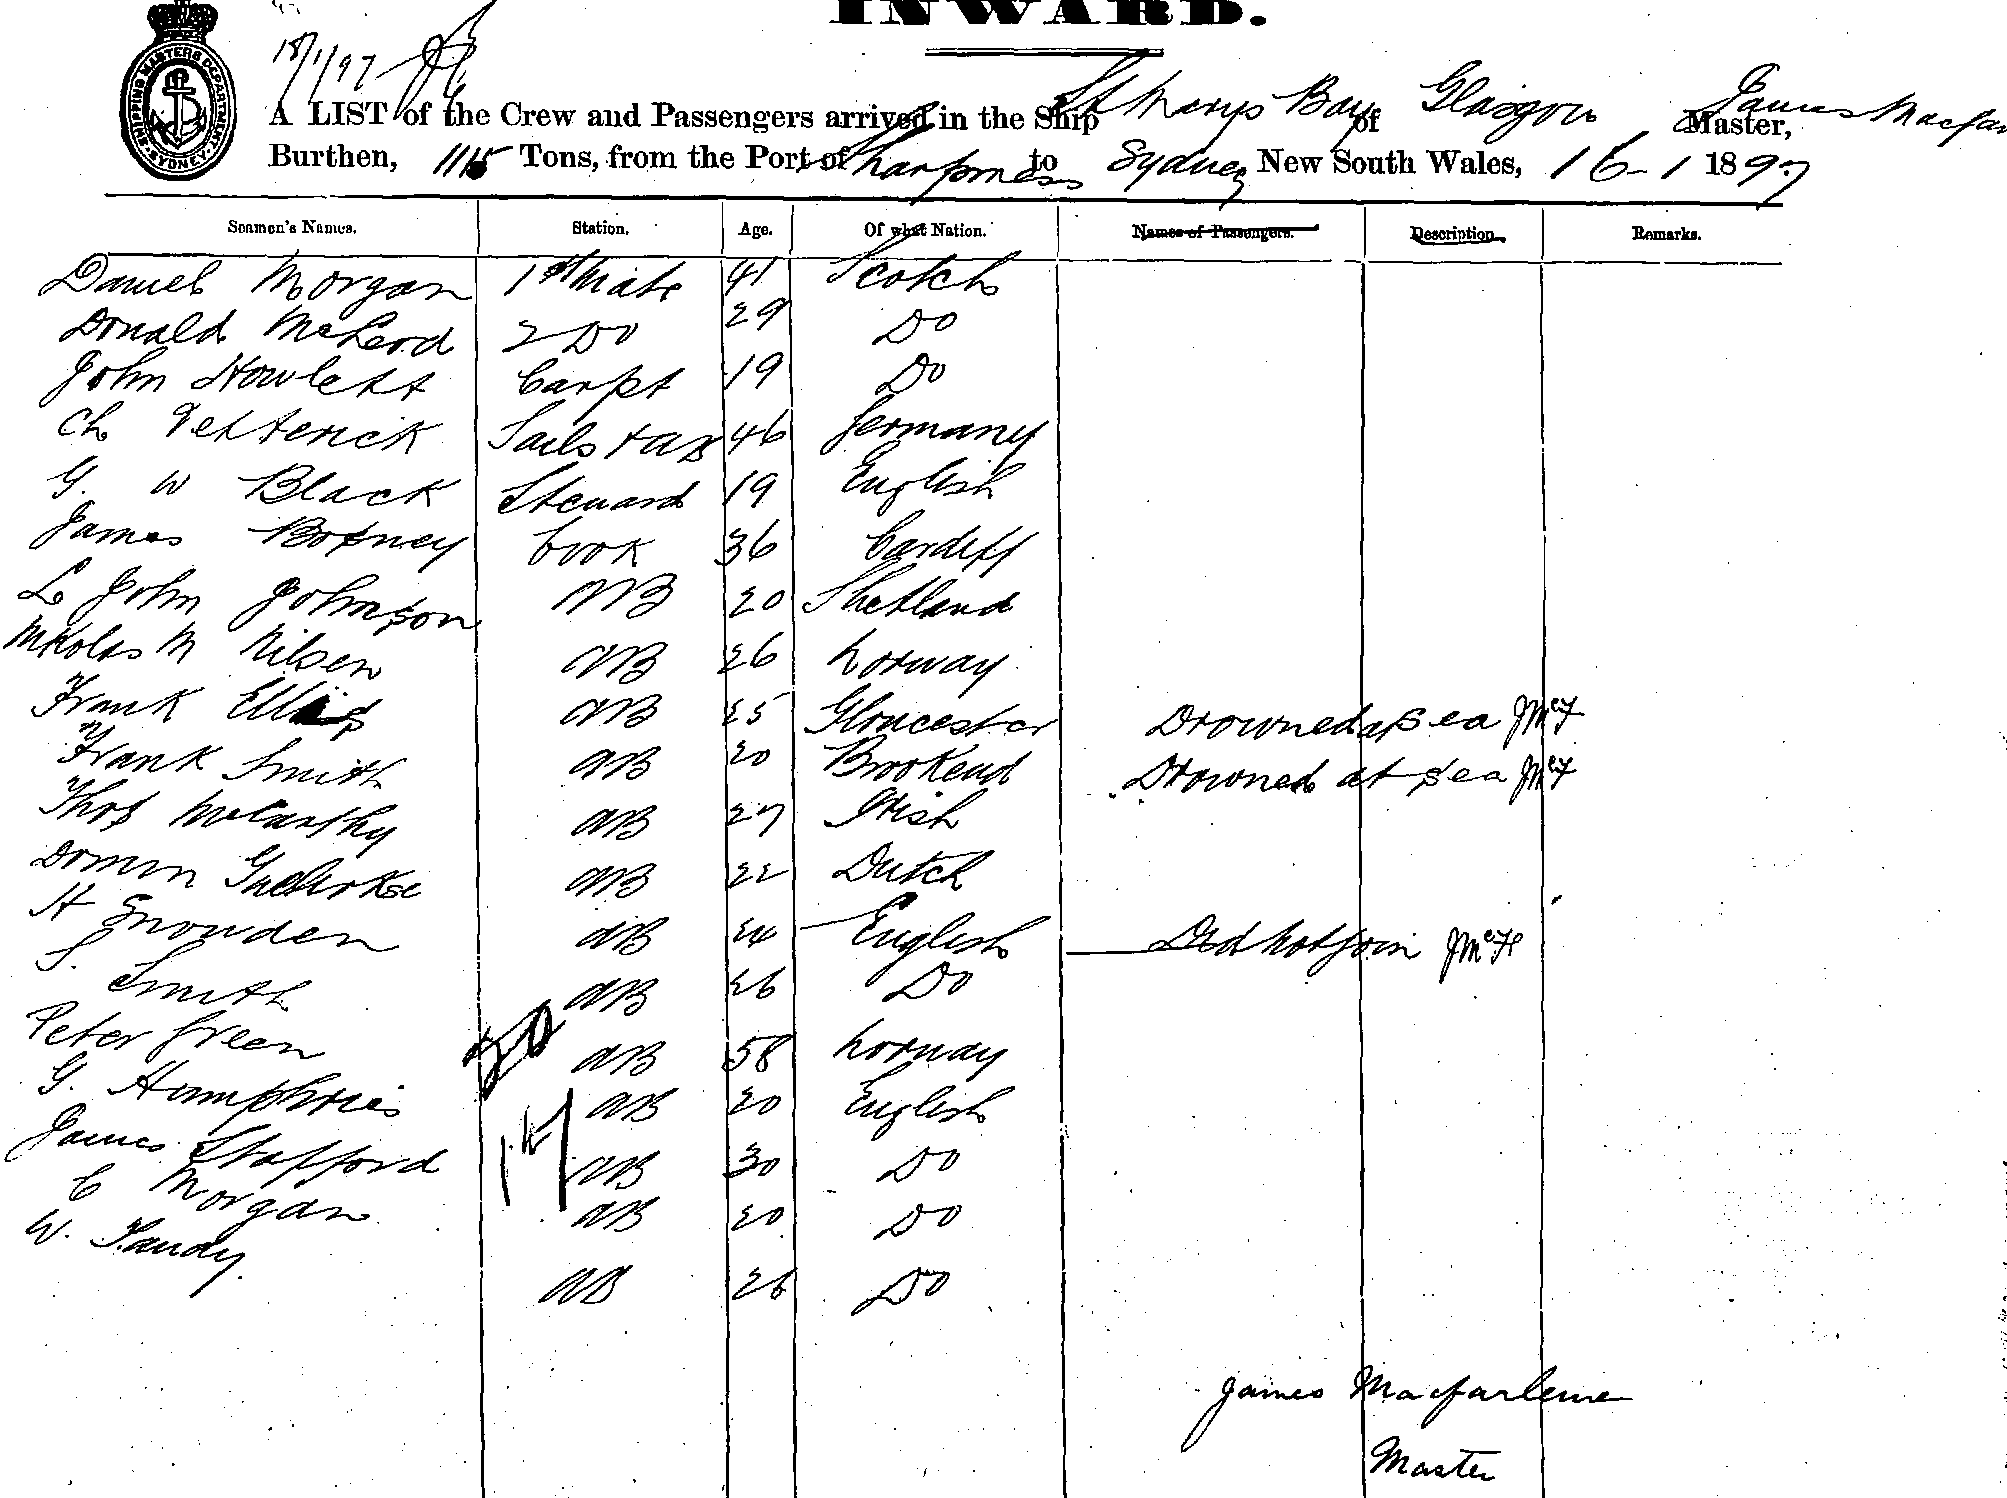 INWARD.
SHIPPING MASTERS DEPARTMENT SYDNEY
18/1/97
A LIST of the Crew and Passengers arrived in the Ship St Marys Bay of Glasgow James Macfar Master,
Burthen, 1115 Tons, from the Port of Sharpness to Sydney New South Wales, 16-1 1897
Seamen's Names. Station. Age. Of what Nation. Names of Passengers. Description. Remarks.
Daniel Morgan 1st Mate 41 Scotch
Donald McLeod 2 Do 29 Do
John Howlett Carpt 19 Do
Ch Petterick Sails & AB 46 Germany
G. W Black Steward 19 English
James Cook 36 Cardiff
L John Johnson AB 20 Shetland
Nikolas M Nilsen AB 26 Norway
Frank Ellis AB 25 Gloucester Drowned at Sea JMcF
Frank Smith AB 20 Brookend Drowned at Sea JMcF
Thos McCarthy AB 27 Irish
AB 22 Dutch
H Snowden AB 24 English Did not join JMcF
S. Smith AB 26 Do
Peter Green AB 58 Norway
20
G. Humphries AB 20 English
17
James Stafford AB 30 Do
C Morgan AB 20 Do
W. Tandy AB 26 Do
James Macfarlane
Master